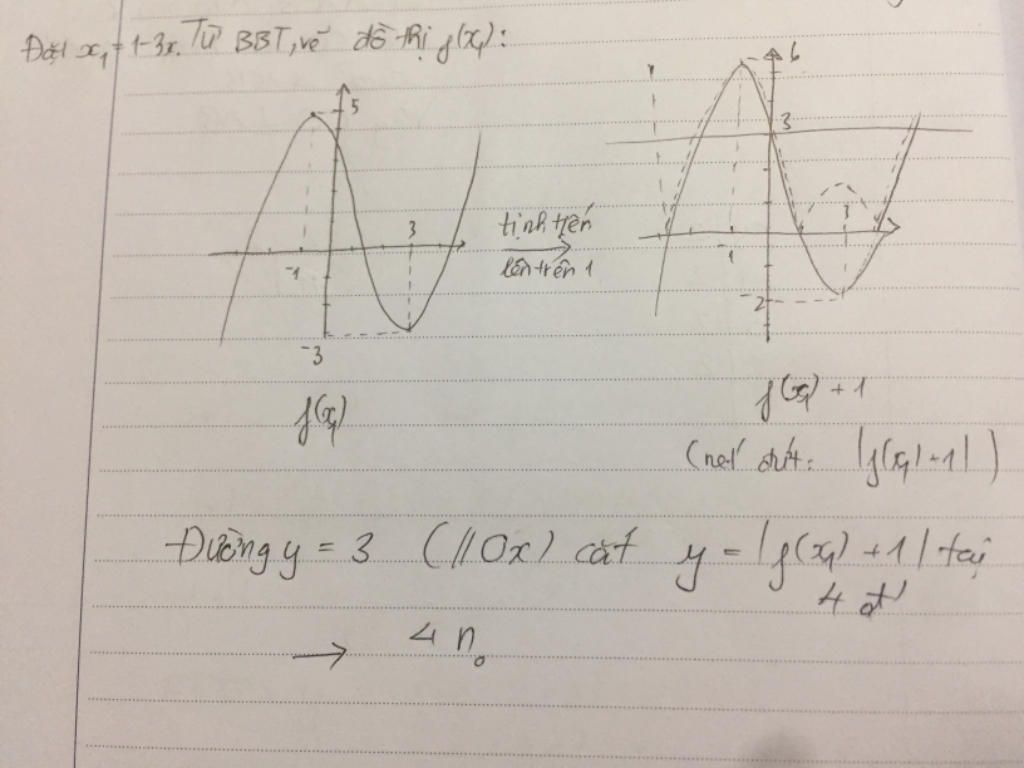 Đặt x₁ = 1-3x. Từ BBT, vẽ đồ thị f(x₁):
5
-1
3
-3
f(x₁)
tịnh tiến
lên trên 1
6
3
-1
3
-2
f(x₁) + 1
(nét đứt: |f(x₁)+1|)
Đường y = 3 (//Ox) cắt y = |f(x₁) + 1| tại
4 đ'
→ 4 n₀